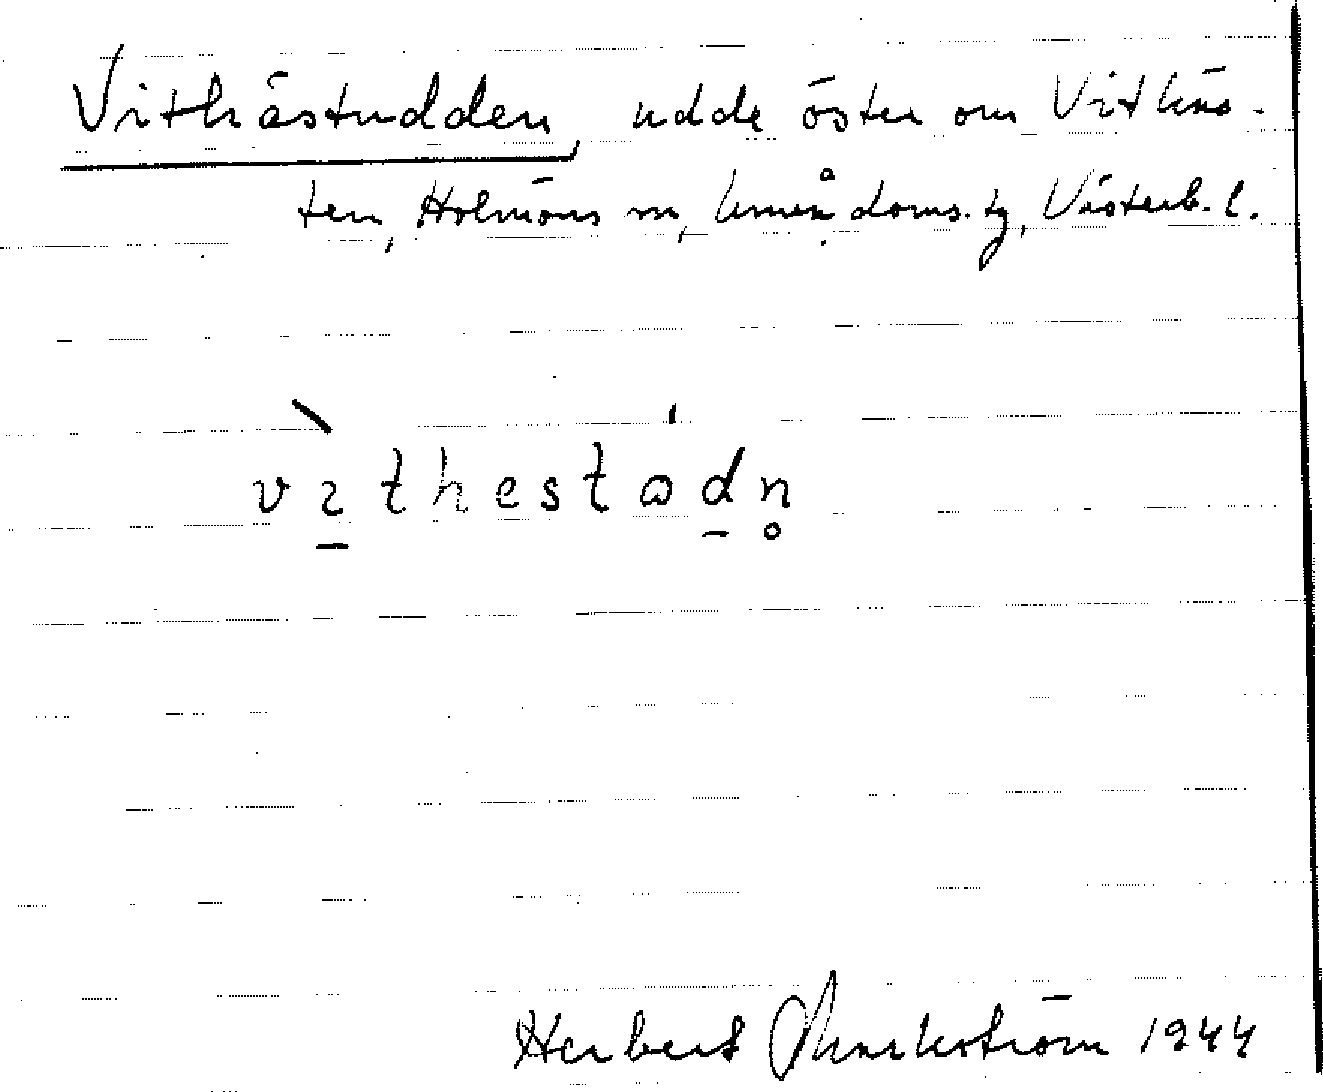 Vithästudden, udde öster om Vithäs-
ten, Holmöns sn, Umeå doms. tg, Västerb. l.
vıthestɷdn̥
Herbert 1944